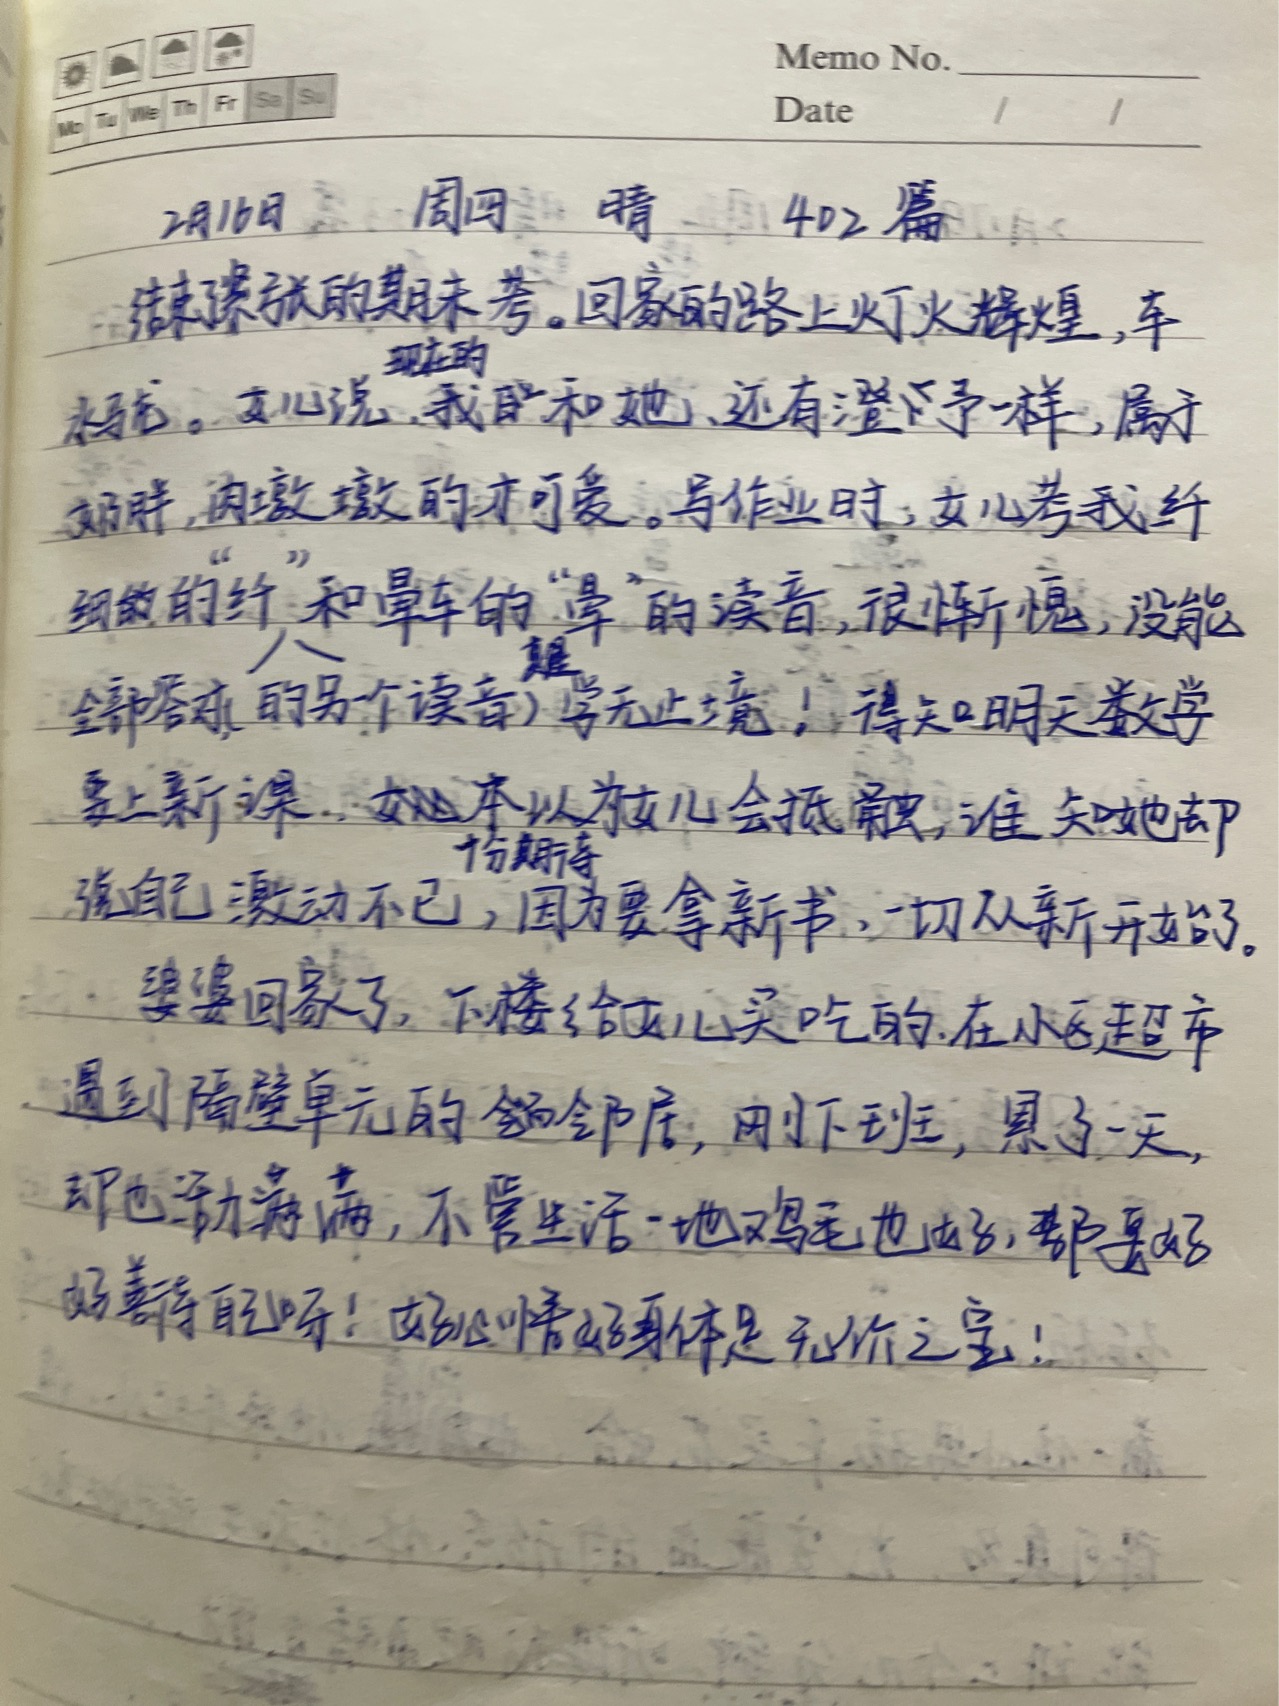 Memo No.
Mo Tu We Th Fr Sa Su
Date / /
2月16日 周四 晴 402篇
结束紧张的期末考。回家的路上灯火辉煌,车
水马龙。女儿说,现在的我和她、还有澄下予一样,属于
奶胖,肉墩墩的才可爱。写作业时,女儿考我纤
细的“纤”和晕车的“晕”的读音,很惭愧,没能
全部答对的另一个读音,真是学无止境!得知明天数学
要上新课,本以为女儿会抵触,谁知她却
说自己激动不已,十分期待因为要拿新书,一切从新开始了。
婆婆回家了,下楼给女儿买吃的.在小区超市
遇到隔壁单元的邻居,刚下班,累了一天,
却也活力满满,不管生活一地鸡毛也好,都要好
好善待自己呀!好心情好身体是无价之宝!